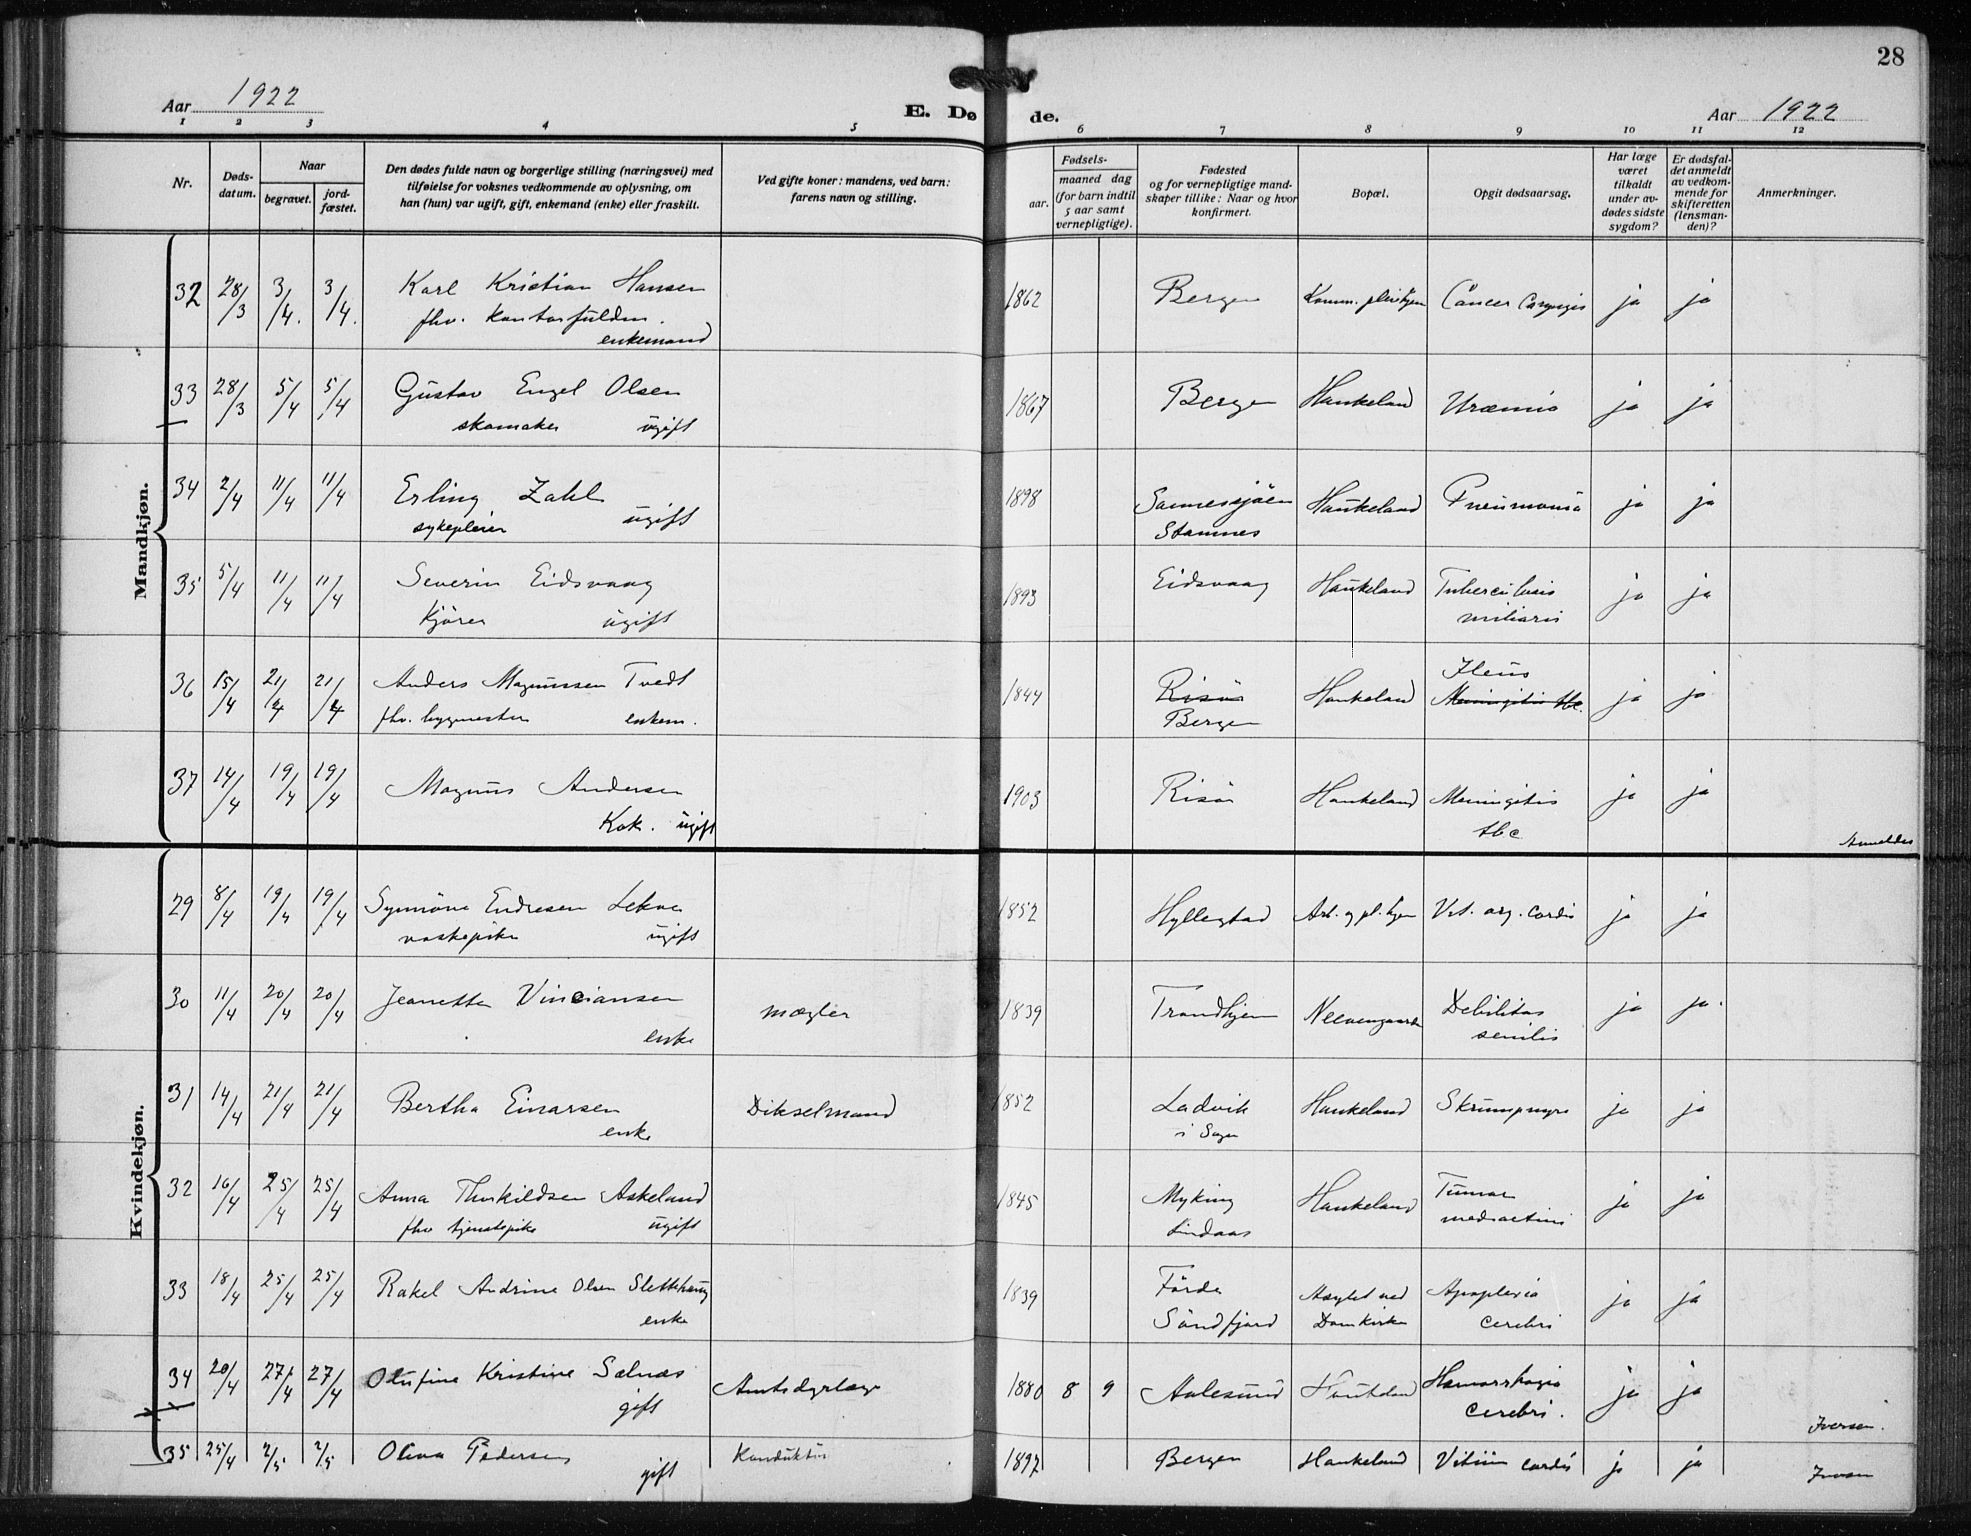 28
Aar 1922
E. Døde.
Aar 1922
1 2 3 4 5 6 7 8 9 10 11 12
Nr.
Døds-
datum.
Naar
begravet.
jord-
fæstet.
Den dødes fulde navn og borgerlige stilling (næringsvei) med
tilføielse for voksnes vedkommende av oplysning, om
han (hun) var ugift, gift, enkemand (enke) eller fraskilt.
Ved gifte koner: mandens, ved barn:
farens navn og stilling.
Fødsels-
aar.
maaned dag
(for barn indtil
5 aar samt
vernepligtige).
Fødested
og for vernepligtige mand-
skaper tillike: Naar og hvor
konfirmert.
Bopæl.
Opgit dødsaarsag.
Har læge
været
tilkaldt
under av-
dødes sidste
sygdom?
Er dødsfal-
det anmeldt
av vedkom-
mende for
skifteretten
(lensman-
den)?
Anmerkninger.
Mandkjøn.
32 28/3 3/4. 3/4. Karl Kristian Hansen 1862 Bergen Komm. pleiehjem Cancer ja ja
fhv.
enkemand
33 28/3 5/4 5/4 Gustav Engel Olsen 1867 Bergen Haukeland Uræmia ja ja
skomaker ugift
34 2/4 11/4 11/4 Erling Zahl 1898 Sannessjöen Haukeland Pneumonia ja ja
sykepleier ugift Stamnes
35 5/4 11/4 11/4 Severin Eidsvaag 1893 Eidsvaag Haukeland Tuberculosis ja ja
Kjörer ugift miliaris
36 15/4 21/4 21/4 Anders Magnussen Tvedt 1844 Risör Haukeland Ileus ja ja
Meningitis tbc.
fhv. bygmester enkem. Bergen
37 14/4 19/4 19/4 Magnus Andersen 1903 Risör Haukeland Meningitis ja ja
Kok. ugift tbc
Anmeldes
Kvindekjøn.
29 8/4 19/4 19/4 Synnöve Endresen Lekva 1852 Hyllestad Arb. og pl. hjem Vit. org. cordis ja ja
vaskepike ugift
30 11/4 20/4 20/4 Jeanette Vinciansen mægler 1839 Trondhjem Neevengaarden Debilitas ja ja.
enke senilis
31 14/4 21/4 21/4 Bertha Einarsen Dikselmand 1852 Ladvik Haukeland Skrumpnyre ja ja
enke i Sogn
32 16/4 25/4 25/4 Anna Thorkildsen Askeland 1845 Myking Haukeland Tumor ja ja
fhv tjenestepike ugift Lindaas mediastini
33 18/4 25/4 25/4 Rakel Andrine Olsen Slettehaug 1839 Förde Asylet ved Apoplexia ja ja
enke Söndfjord Domkirken cerebri
34 20/4 27/4 27/4 Olufine Kristine Selnæs Amtsdyrlæge 1880 8 9 Aalesund Haukeland Hæmorrhagia ja ja
gift cerebri.
Iversen.
35 25/4 2/5 2/5 Oliva Pedersen Konduktör 1897 Bergen Haukeland Vitium cordis ja ja
gift Iversen